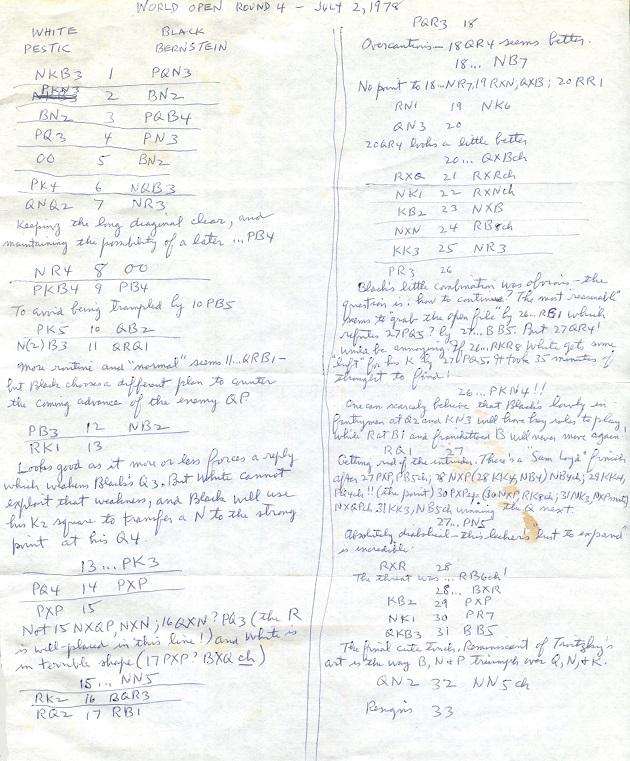 WORLD OPEN ROUND 4 - JULY 2, 1978
WHITE BLACK
PESTIC BERNSTEIN
NKB3 1 PQN3
PKN3 2 BN2
BN2 3 PQB4
PQ3 4 PN3
OO 5 BN2
PK4 6 NQB3
QNQ2 7 NR3
Keeping the long diagonal clear, and
maintaining the possibility of a later ...PB4
NR4 8 OO
PKB4 9 PB4
To avoid being trampled by 10PB5
PK5 10 QB2
N(2)B3 11 QRQ1
More routine and "normal" seems 11...QRB1 -
but Black chooses a different plan to counter
the coming advance of the enemy QP.
PB3 12 NB2
RK1 13
Looks good as it more or less forces a reply
which weakens Black's Q3. But White cannot
exploit that weakness, and Black will use
his K2 square to transfer a N to the strong
point at his Q4.
13... PK3
PQ4 14 PXP
PXP 15
Not 15 NXQP, NXN; 16QXN? PQ3 (the R
is well-placed in this line!) and White is
in terrible shape (17PXP? BXQ ch)
15... NN5
RK2 16 BQR3
RQ2 17 RB1
PQR3 18
Overcautious - 18QR4 seems better.
18... NB7
No point to 18...NR7, 19RXN, QXB; 20RR1
RN1 19 NK6
QN3 20
20QR4 looks a little better
20... QXBch
RXQ 21 RXRch
NK1 22 RXNch
KB2 23 NXB
NXN 24 RB8ch
KK3 25 NR3
PR3 26
Black's little combination was obvious - the
question is: how to continue? The most "reasonable"
seems to "grab the open file" by 26...RB1 which
refutes 27PQ5? by 27...BB5. But 27QR4!
would be annoying. If 26...RKR8 White gets some
"luft" for his K by 27PQ5. It took 35 minutes of
thought to find!
26... PKN4!!
One can scarcely believe that Black's lowly in-
fantrymen at Q2 and KN3 will have key roles to play,
while R at B1 and fianchettoed B will never move again.
RQ1 27
Getting rid of the intruder. There's a "Sam Loyd" finish
after 27PXP, PB5ch; 28NXP (28KK4, NB4) NB4ch; 29KK4,
the point) 30PXP (30NXP, RK8ch; 31NK3,
NXQPch, 31KK3, NB5ch winning the Q next.
27... PN5
Absolutely diabolical - this "lust to expand"
is incredible.
RXR 28
The threat was ...RB6ch!
28... BXR
KB2 29 PXP
NK1 30 PR7
QKB3 31 BB5
The final cute touch. Reminiscent of Troitzky's
art is the way B, N & P triumph over Q, N, & K.
QN2 32 NN5ch
Resigns 33